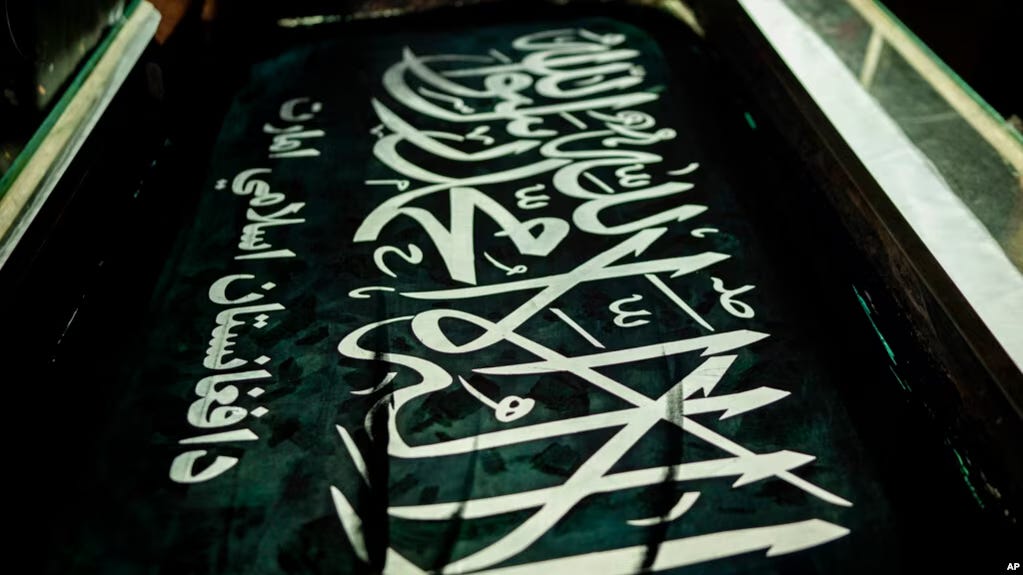 لا اله الا الله محمد رسول الله
دافغانستان اسلامي امارت
AP